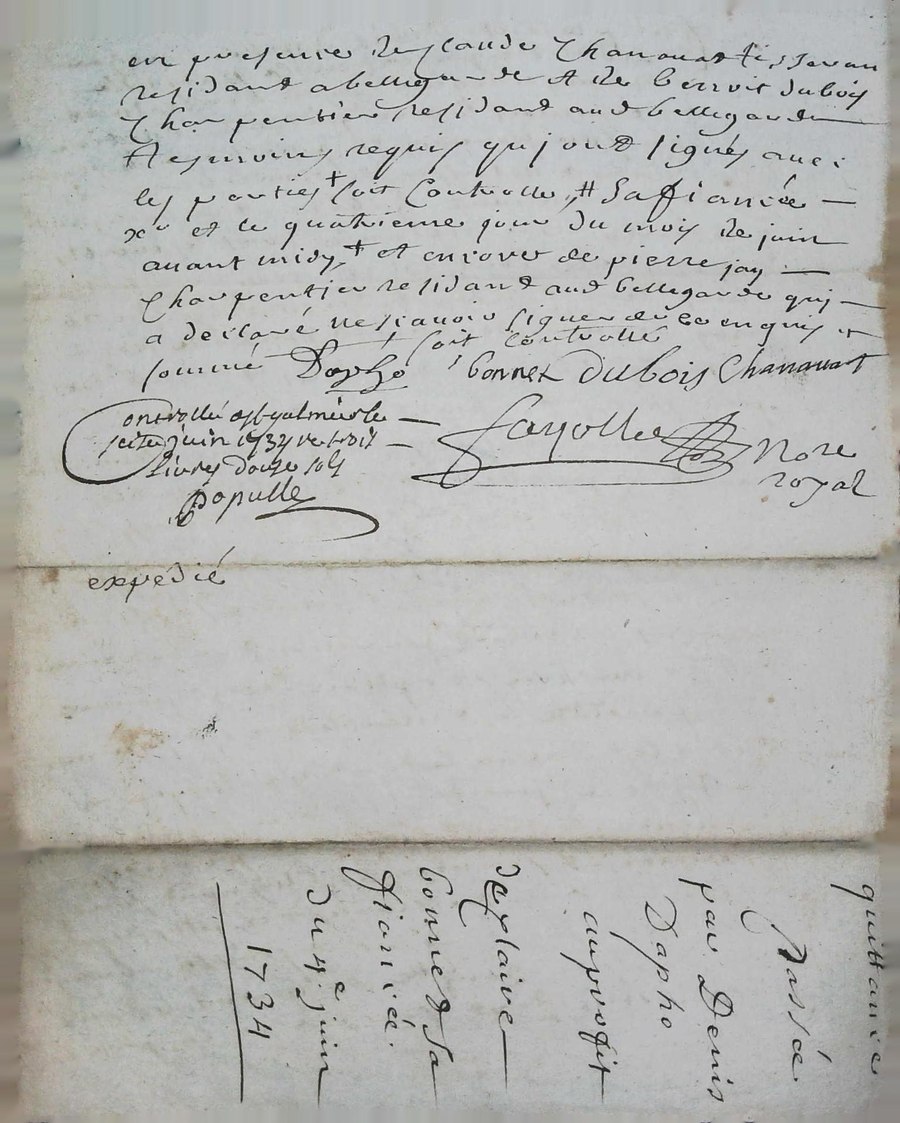 en presence de Claude Chanouat tisseran
residant a bellegarde et de benoit dubois
Charpentier residant aud bellegarde
tesmoins requis qui ont signés avec
les parties + soit Controllé # Sa fiancée
xv et le quatrieme jour du mois de juin
avant midy + et encores de pierre jay
Charpentier residant aud bellegarde qui
a declaré ne scavoir signer de ce enquis et
sommé soit Controllé
Dapho bonnet Dubois Chanouat
Controllé a St galmier le
sept juin 1734 re trois
livres douze sols
Populle
Fayolle Nore
royal
expedié
quittance
Passée
par Denis
Dapho
au profit
de Claire
bonnet sa
fiancée.
du 4e juin
1734